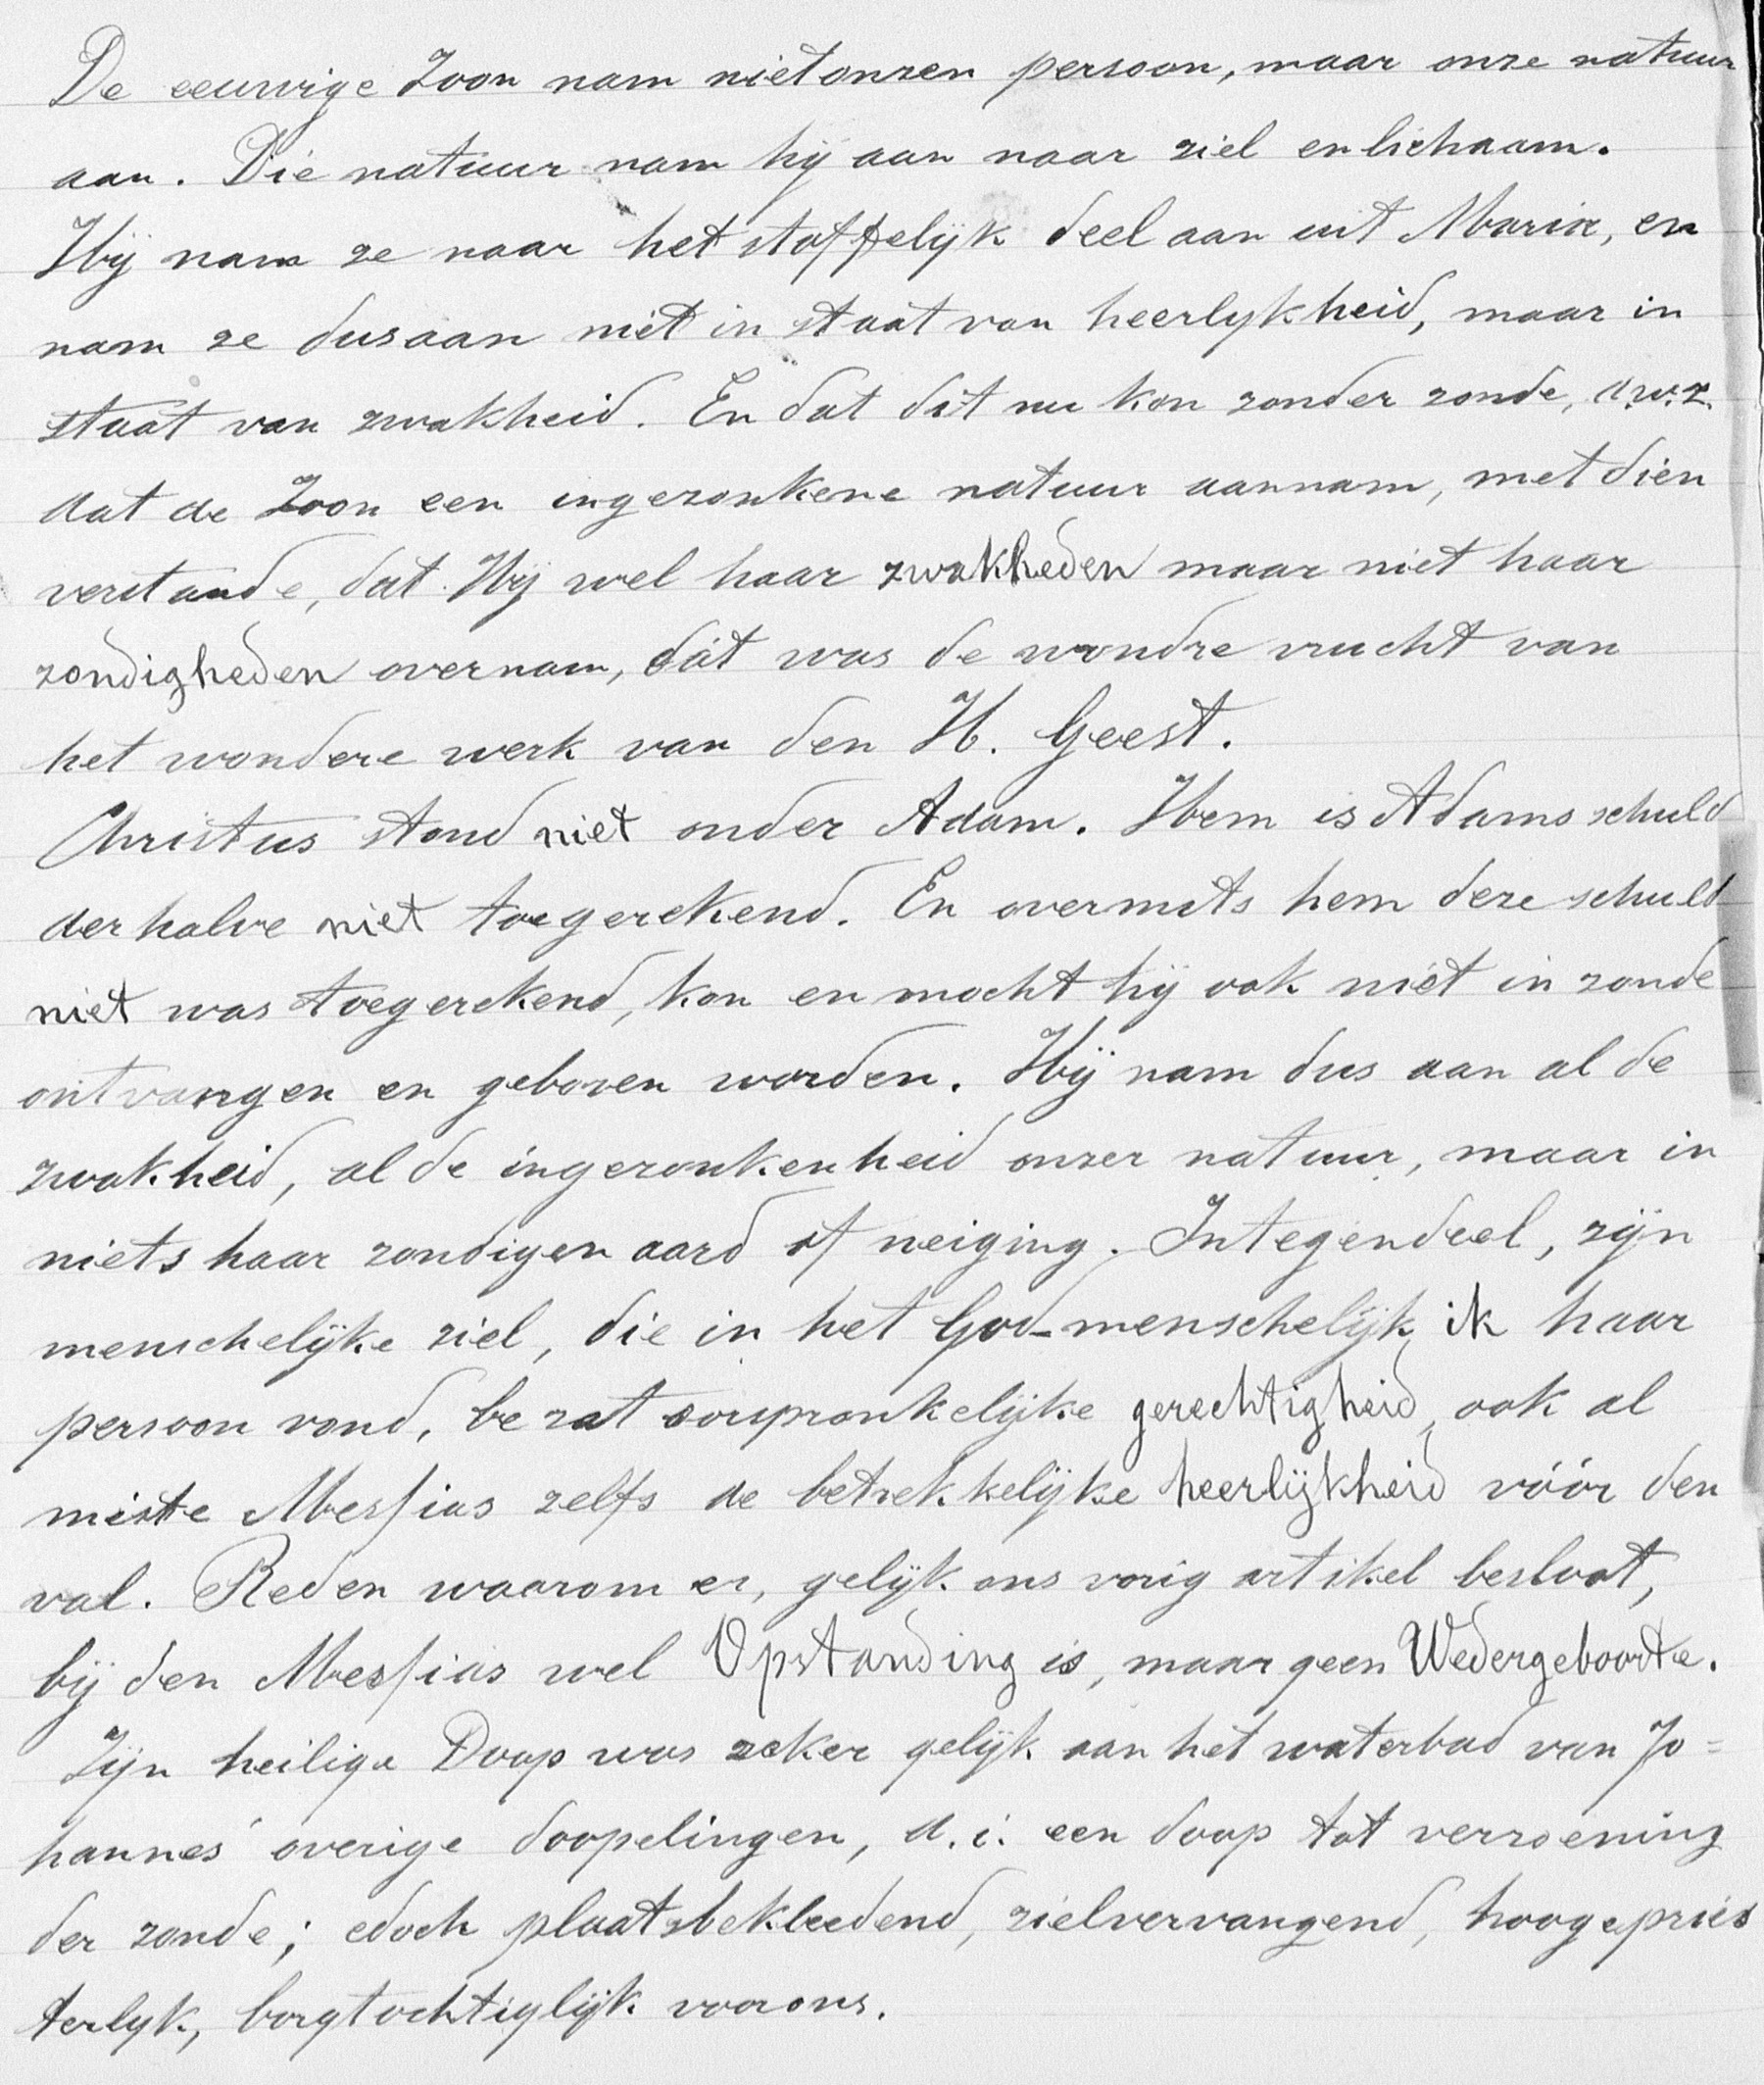 De eeuwige Zoon nam niet onzen persoon, maar onze natuur
aan. Die natuur nam hij aan naar ziel en lichaam.
Hij nam ze naar het stoffelijk deel aan uit Maria, en
nam ze dus aan niet in staat van heerlykheid, maar in
staat van zwakheid. En dat dit nu kon zonder zonde, d.w.z.
dat de Zoon een ingezonkene natuur aannam, met dien
verstande, dat Hij wel haar zwakheden maar niet haar
zondigheden overnam, dát was de wondre vrucht van
het wondere werk van den H. Geest.
Christus stond niet onder Adam. Hem is Adams schuld
derhalve niet toegerekend. En overmits hem deze schuld
niet was toegerekend, kon en mocht hij ook niet in zonde
ontvangen en geboren worden. Hij nam dus aan al de
zwakheid, al de ingezonkenheid onzer natuur, maar in
niets haar zondigen aard of neiging. Integendeel, zijn
menschelijke ziel, die in het God-menschelijk ik haar
persoon vond, bezat oorspronkelijke gerechtigheid, ook al
miste Messias zelfs de betrekkelijke heerlijkheid vóór den
val. Reden waarom er, gelijk ons vorig artikel besloot,
bij den Messias wel Opstanding is, maar geen Wedergeboorte.
Zijn heilige Doop was zeker gelijk aan het waterbad van Jo=
hannes' overige doopelingen, d.i. een doop tot verzoening
der zonde; edoch plaatsbekleedend, zielvervangend, hoogepries
terlyk, borgtochtiglijk voor ons.